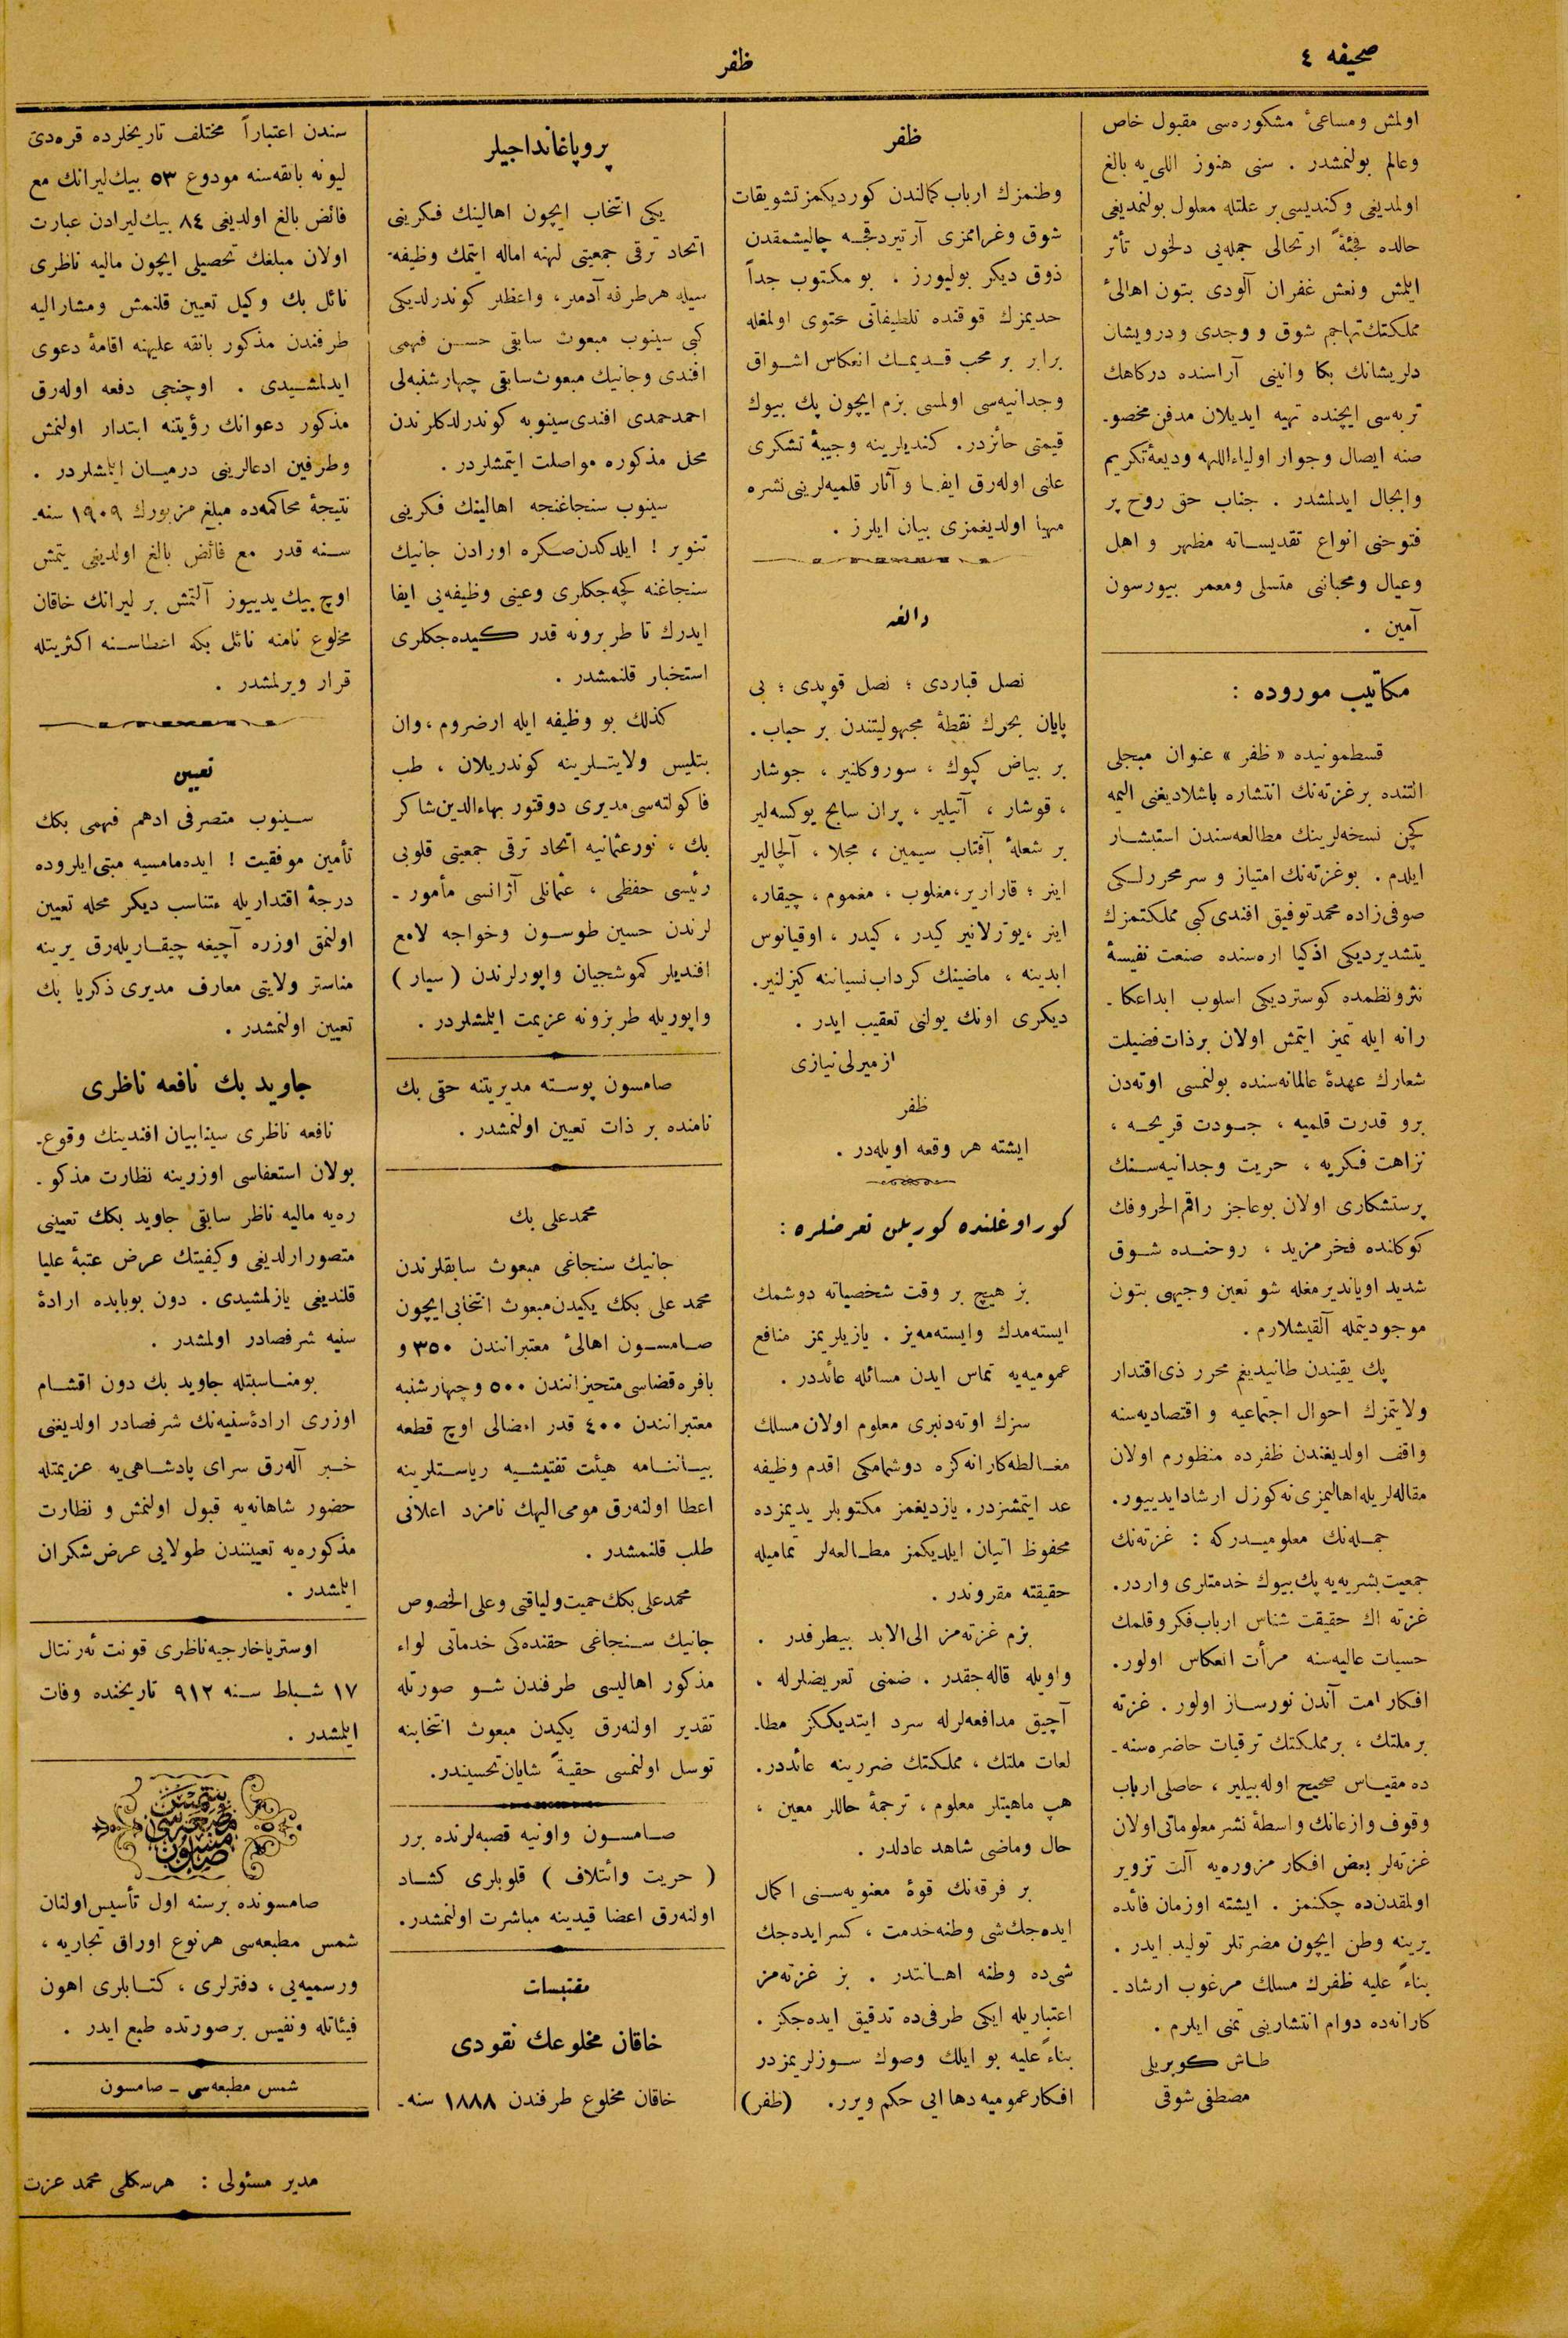 صحیفه ٤
ظفر
اولمش ومساعیٔ مشكوره‌سی مقبول خاص
وعالم بولنمشدر . سنی هنوز اللی‌یه بالغ
اولمدیغی وكندیسی بر علتله معلول بولنمدیغی
حالده فجئةً ارتحالی جمله‌یی دلخون تأثر
ایلمش ونعش غفران آلودی بتون اهالیٔ
مملكتك تهاجم شوق و وجدی ودرویشان
دلریشانك بكا وانینی آراسنده دركاهك
تربه‌سی ایچنده تهیه ایدیلان مدفن مخصو-
صنه ایصال وجوار اولیاءاللهه ودیعهٔ تكریم
وابجال ایدلمشدر . جناب حق روح پر
فتوحنی انواع تقدیساته مظهر و اهل
وعیال ومحبانی متسلی ومعمر بیورسون
آمین .
مكاتیب موروده :
قسطمونیده « ظفر » عنوان مبجلی
التنده بر غزته‌نك انتشاره باشلادیغنی الیمه
كچن نسخه‌لرینك مطالعه‌سندن استبشار
ایلدم . بوغزته‌نك امتیاز و سرمحررلكی
صوفی‌زاده محمد توفیق افندی كبی مملكتمزك
یتشدیردیكی اذكیا اره‌سنده صنعت نفیسهٔ
نثرونظمده كوستردیكی اسلوب ابداعكا-
رانه ایله تمیز ایتمش اولان برذات فضیلت
شعارك عهدهٔ عالمانه‌سنده بولنمسی اوته‌دن
برو قدرت قلمیه ، جودت قریحه ،
نزاهت فكریه ، حریت وجدانیه‌سنك
پرستشكاری اولان بوعاجز راقم‌الحروفك
كوكلنده فخر مزید ، روحنده شوق
شدید اویاندیرمغله شو تعین وجیهی بتون
موجودیتمله آلقیشلارم .
پك یقیندن طانیدیغم محرر ذی‌اقتدار
ولایتمزك احوال اجتماعیه و اقتصادیه‌سنه
واقف اولدیغندن ظفرده منظورم اولان
مقاله‌لریله اهالیمزی نه كوزل ارشاد ایدییور.
جمله‌نك معلومیدركه : غزته‌نك
جمعیت بشریه‌یه پك بیوك خدمتلری واردر.
غزته اك حقیقت شناس ارباب فكر وقلمك
حسیات عالیه‌سنه مرأت انعكاس اولور.
افكار امت آندن نورساز اولور . غزته
بر ملتك ، بر مملكتك ترقیات حاضره‌سنه-
ده مقیاس صحیح اوله‌بیلیر ، حاصلی ارباب
وقوف واذعانك واسطهٔ نشر معلوماتی اولان
غزته‌لر بعض افكار مزوره‌یه آلت تزویر
اولمقدن‌ده چكنمز . ایشته اوزمان فائده
یرینه وطن ایچون مضرتلر تولید ایدر .
بناءً علیه ظفرك مسلك مرغوب ارشاد-
كارانه‌ده دوام انتشارینی تمنی ایلرم .
طاش كوپریلی
مصطفی شوقی
ظفر
وطنمزك ارباب كمالندن كوردیكمز تشویقات
شوق وغراممزی آرتیردقجه چالیشمقدن
ذوق دیكر بولیورز . بو مكتوب جداً
حدیمزك فوقنده تلطیفاتی محتوی اولمغله
برابر بر محب قدیمك انعكاس اشواق
وجدانیه‌سی اولمسی بزم ایچون پك بیوك
قیمتی حائزدر. كندیلرینه وجیبهٔ تشكری
علنی اوله‌رق ایفا و آثار قلمیه‌لرینی نشره
مهیا اولدیغمزی بیان ایلرز .
دالغه
نصل قباردی ؛ نصل قوپدی ؛ بی
پایان بحرك نقطهٔ مجهولیتندن بر حباب .
بر بیاض كپوك ، سوروكلنیر ، جوشار
، قوشار ، آتیلیر ، پران سابح یوكسه‌لیر
بر شعلهٔ آفتاب سیمین ، مجلا ، آلچالیر
اینر ؛ قارارىر، مغلوب ، مغموم ، چیقار،
اینر ، یوترلانیر كیدر ، كیدر ، اوقیانوس
ابدینه ، ماضینك كرداب نسیاننه كیزلنیر.
دیكری اونك یولنی تعقیب ایدر .
ازمیرلی نیازی
ظفر
ایشته هر وقعه اویله‌در .
كور اوغلنده كوریلن تعرضلره :
بز هیچ بر وقت شخصیاته دوشمك
ایسته‌مدك وایسته‌مه‌یز . یازیلریمز منافع
عمومیه‌یه تماس ایدن مسائله عائددر .
سزك اوته‌دنبری معلوم اولان مسلك
مغالطه‌كارانه‌كزه دوشمامكی اقدم وظیفه
عد ایتمشزدر. یازدیغمز مكتوبلر یدیمزده
محفوظ اتیان ایلدیكمز مطالعه‌لر تمامیله
حقیقته مقروندر .
بزم غزته‌مز الی‌الابد بیطرفدر .
واویله قاله‌جقدر . ضمنی تعریضلرله ،
آچیق مدافعه‌لرله سرد ایتدیككز مطا-
لعات ملتك ، مملكتك ضررینه عائددر.
هپ ماهیتلر معلوم ، ترجمهٔ حاللر معین ،
حال وماضی شاهد عادلدر .
بر فرقه‌نك قوهٔ معنویه‌سنی اكمال
ایده‌جك شی وطنه خدمت ، كسر ایده‌جك
شی‌ده وطنه اهانتدر . بز غزته‌مز
اعتباریله ایكی طرفی‌ده تدقیق ایده‌جكز .
بناءً علیه بو ایلك وصوك سوزلریمزدر
افكار عمومیه دها ایی حكم ویرر. (ظفر)
پروپاغانداجیلر
یكی انتخاب ایچون اهالینك فكرینی
اتحاد ترقی جمعیتی لهنه اماله ایتمك وظیفه-
سیله هر طرفه آدملر، واعظلر كوندرلدیكی
كبی سینوب مبعوث سابقی حسن فهمی
افندی وجانیك مبعوث سابقی چهارشنبه‌لی
احمدحمدی افندی سینوبه كوندرلدكلرندن
محل مذكوره مواصلت ایتمشلردر .
سینوب سنجاغنجه اهالینك فكرینی
تنویر ! ایلدكدن صكره اورادن جانیك
سنجاغنه كچه‌جكلری وعینی وظیفه‌یی ایفا
ایدرك تا طربزونه قدر كیده‌جكلری
استخبار قلنمشدر .
كذلك بو وظیفه ایله ارضروم ، وان
بتلیس ولایتلرینه كوندریلان ، طب
فاكولته‌سی مدیری دوقتور بهاءالدین شاكر
بك ، نورعثمانیه اتحاد ترقی جمعیتی قلوبی
رئیسی حفظی ، عثمانلی آژانسی مأمور-
لرندن حسین طوسون وخواجه لامع
افندیلر كموشجیان واپورلرندن ( سیار )
واپوریله طربزونه عزیمت ایلمشلردر .
صامسون پوسته مدیریتنه حقی بك
نامنده بر ذات تعیین اولنمشدر .
محمدعلی بك
جانیك سنجاغی مبعوث سابقلرندن
محمد علی بكك یكیدن مبعوث انتخابی ایچون
صامسون اهالیٔ معتبرانندن ٣٥٠ و
بافره قضاسی متحیزانندن ٥٠٠ وچهارشنبه
معتبرانندن ٤٠٠ قدر امضالی اوچ قطعه
بیاننامه هیئت تفتیشیه ریاستلرینه
اعطا اولنه‌رق مومی‌الیهك نامزد اعلانی
طلب قلنمشدر .
محمدعلی بكك حمیت ولیاقتی وعلی‌الخصوص
جانیك سنجاغی حقنده‌كی خدماتی لواء
مذكور اهالیسی طرفندن شو صورتله
تقدیر اولنه‌رق یكیدن مبعوث انتخابنه
توسل اولنمسی حقیقةً شایان تحسیندر.
صامسون واونیه قصبه‌لرنده برر
( حریت وائتلاف ) قلوبلری كشاد
اولنه‌رق اعضا قیدینه مباشرت اولنمشدر.
مقتبسات
خاقان مخلوعك نقودی
خاقان مخلوع طرفندن ١٨٨٨ سنه-
سندن اعتباراً مختلف تاریخلرده قره‌دی
لیونه بانقه‌سنه مودوع ٥٣ بیك لیرانك مع
فائض بالغ اولدیغی ٨٤ بیك لیرادن عبارت
اولان مبلغك تحصیلی ایچون مالیه ناظری
نائل بك وكیل تعیین قلنمش ومشارالیه
طرفندن مذكور بانقه علیهنه اقامهٔ دعوی
ایدلمشیدی . اوچنجی دفعه اوله‌رق
مذكور دعوانك رؤیتنه ابتدار اولنمش
وطرفین ادعالرینی درمیان ایلمشلردر .
نتیجهٔ محاكمه‌ده مبلغ مزبورك ١٩٠٩ سنه-
سنه قدر مع فائض بالغ اولدیغی یتمش
اوچ بیك یدییوز آلتمش بر لیرانك خاقان
مخلوع نامنه نائل بكه اعطاسنه اكثریتله
قرار ویرلمشدر .
تعیین
سینوب متصرفی ادهم فهمی بكك
تأمین موفقیت ! ایده‌مامسیه مبنی ایلروده
درجهٔ اقتداریله متناسب دیكر محله تعیین
اولنمق اوزره آچیغه چیقاریله‌رق یرینه
مناستر ولایتی معارف مدیری ذكریا بك
تعیین اولنمشدر .
جاوید بك نافعه ناظری
نافعه ناظری سیناپیان افندینك وقوع-
بولان استعفاسی اوزرینه نظارت مذكو-
ره‌یه مالیه ناظر سابقی جاوید بكك تعیینی
متصور اولدیغی وكیفیتك عرض عتبهٔ علیا
قلندیغی یازلمشیدی . دون بوبابده ارادهٔ
سنیه شرفصادر اولمشدر .
بومناسبتله جاوید بك دون اقشام
اوزری ارادهٔ سنیه‌نك شرفصادر اولدیغنی
خبر آله‌رق سرای پادشاهی‌یه عزیمتله
حضور شاهانه‌یه قبول اولنمش و نظارت
مذكوره‌یه تعییننـدن طولایی عرض شكران
ایلمشدر .
اوستریا خارجیه ناظری قونت ئه‌رنتال
١٧ شباط سنه ٩١٢ تاریخنده وفات
ایلمشدر .
شمس مطبعه‌سی صامسون
صامسونده برسنه اول تأسیس اولنان
شمس مطبعه‌سی هرنوع اوراق تجاریه ،
ورسمیه‌یی ، دفترلری ، كتابلری اهون
فیئاتله ونفیس برصورتده طبع ایدر .
شمس مطبعه‌سی ـ صامسون
مدیر مسئولی : هرسكلی محمد عزت